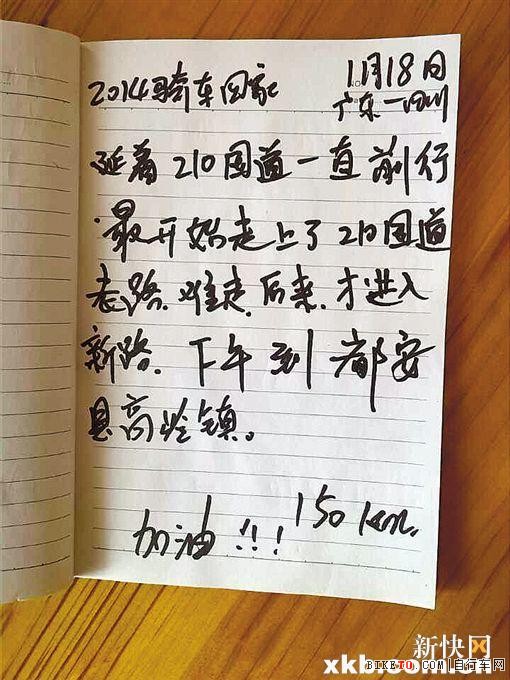 2014骑车回家 11月18日
广东—四川
延着210国道一直前行
最开始走上了210国道
老路.难走.后来.才进入
新路.下午到都安
县高岭镇。
加油!!! 150km.
新快网
xkb.com.cn
BIKETO.COM 自行车网